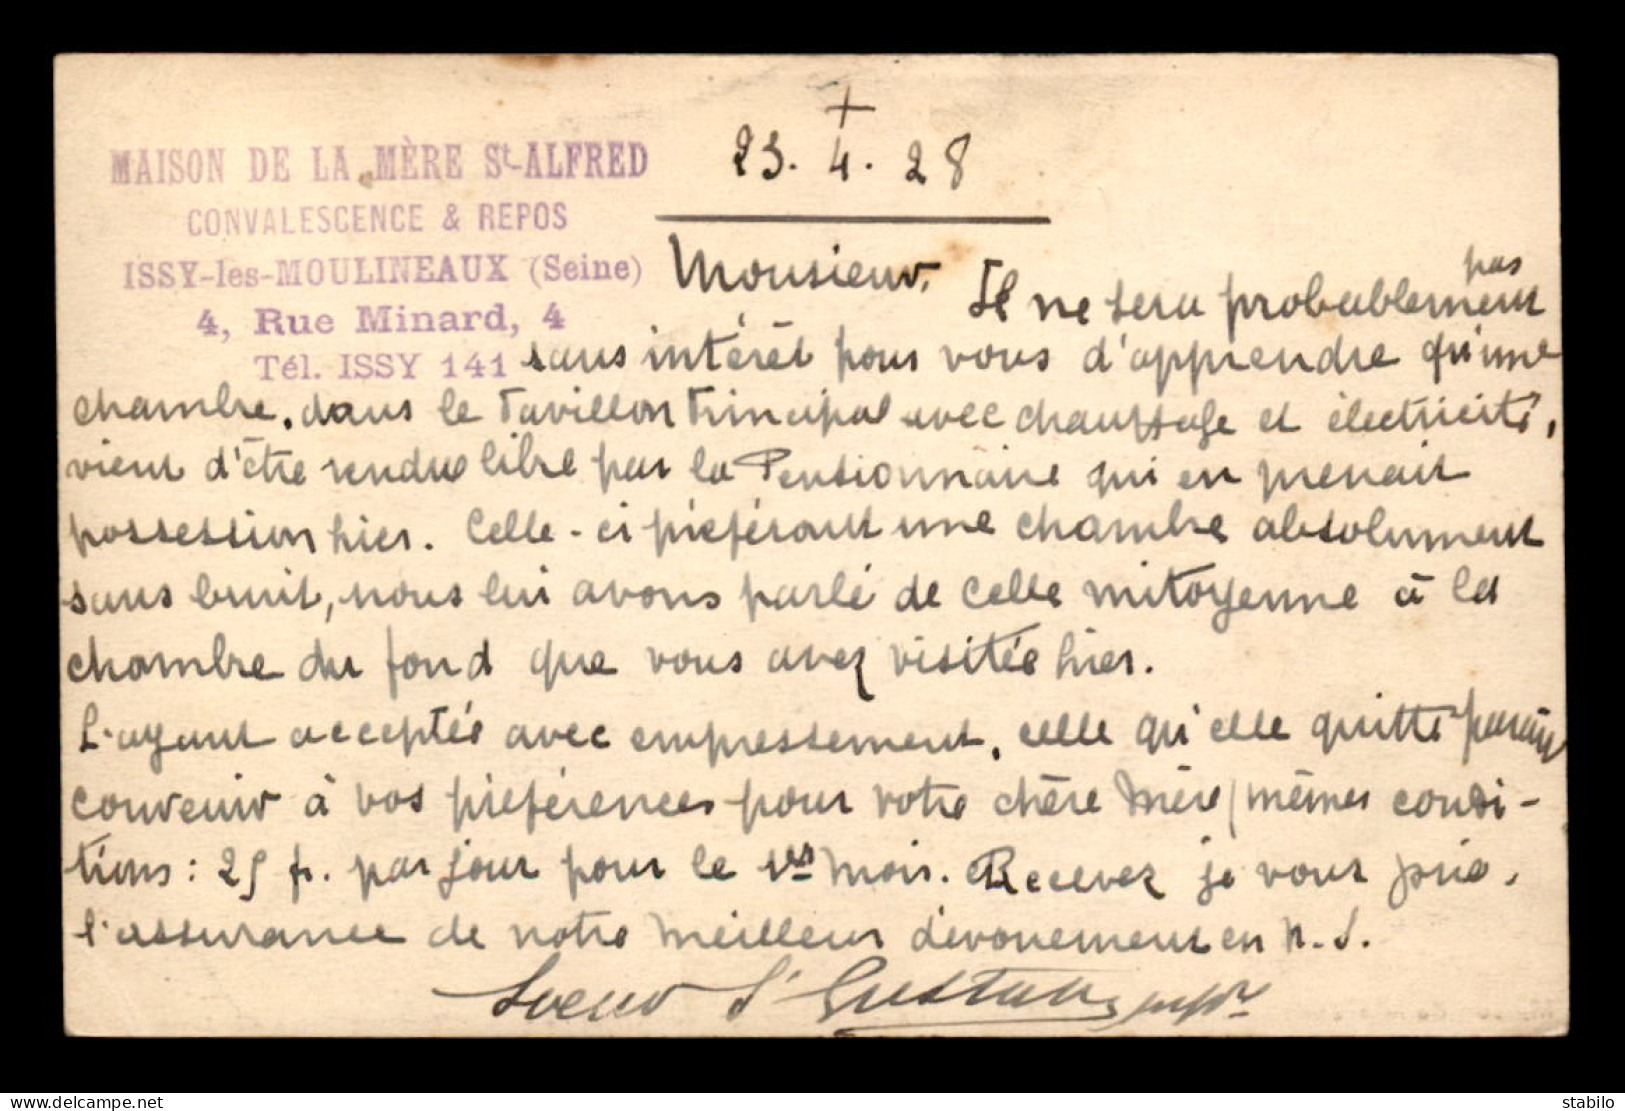 MAISON DE LA MÈRE St-ALFRED
CONVALESCENCE & REPOS
ISSY-les-MOULINEAUX (Seine)
4, Rue Minard, 4
Tél. ISSY 141
+
23. 4. 28
Monsieur,
Il ne sera probablement pas
sans intérêt pour vous d'apprendre qu'une
chambre, dans le Pavillon Principal avec chauffage et électricité,
vient d'être rendue libre par la Pensionnaire qui en prenait
possession hier. Celle-ci préférant une chambre absolument
sans bruit, nous lui avons parlé de celle mitoyenne à la
chambre du fond que vous avez visitée hier.
L'ayant acceptée avec empressement, celle qu'elle quitte paraît
convenir à vos préférences pour votre chère Mère/mêmes condi-
tions: 25 f. par jour pour le 1er mois. Recevez je vous prie,
l'assurance de notre meilleur dévouement en N. S.
Soeur St Gustave, supre
www.delcampe.net
stabilo